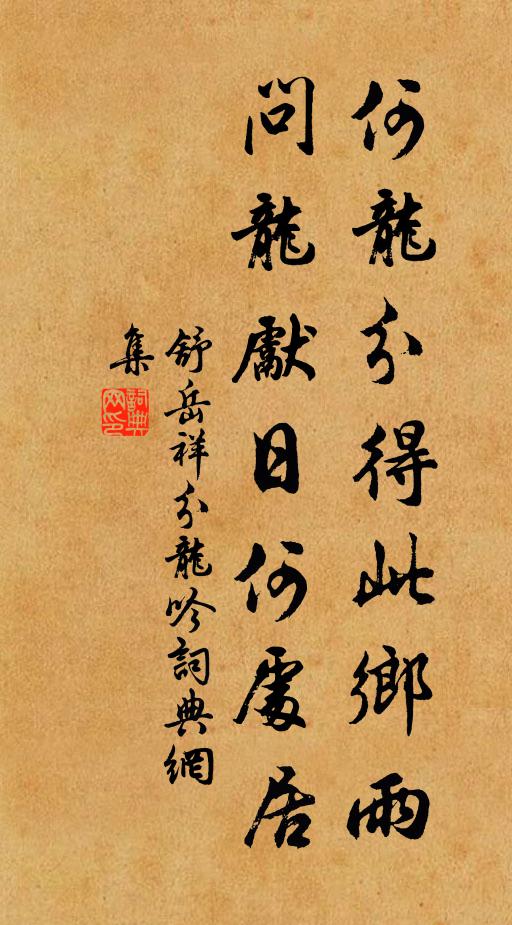 何龍分得此鄉雨
問龍獻日何處居
舒岳祥分龍吟詞典網
集
詞典网印